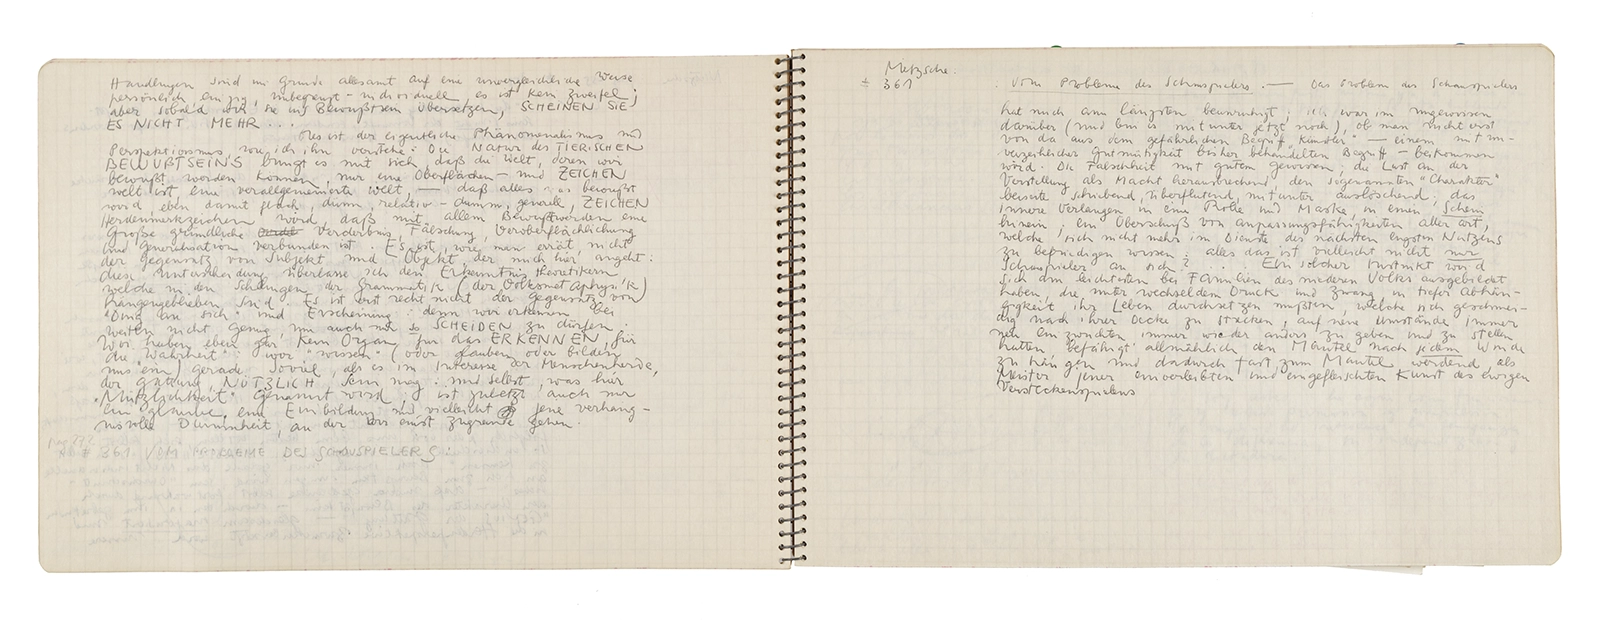 Handlungen sind im Grunde allesamt auf eine unvergleichliche Weise
persönlich einzig, unbegrenzt-individuell es ist kein Zweifel;
aber sobald wir sie ins Bewußtsein übersetzen, SCHEINEN SIE
ES NICHT MEHR...
Dies ist der eigentliche Phänomenalismus und
Perspektivismus, wie ich ihn verstehe: Die Natur des TIERISCHEN
BEWUßTSEINS bringt es mit sich, daß die Welt, deren wir
bewußt werden können, nur eine Oberflächen- und ZEICHEN
welt ist eine verallgemeinerte Welt, — daß alles was bewußt
wird eben damit flach, dünn, relativ-dumm, generell, ZEICHEN
Herdenmerkzeichen wird, daß mit allem Bewußtwerden eine
Große gründliche Verderbnis, Fälschung, Veroberflächlichung
und Generalisation verbunden ist. Es ist, wie man errät nicht
der Gegensatz von Subjekt und Objekt, der mich hier angeht:
diese Unterscheidung überlasse ich den Erkenntnistheoretikern
welche in den Schlingen der Grammatik (der Volksmetaphysik)
hängengeblieben sind. Es ist erst recht nicht der Gegensatz von
"Ding an sich" und Erscheinung: denn wir erkennen bei
weitem nicht genug um auch nur so SCHEIDEN zu dürfen.
Wir haben eben gar kein Organ für das ERKENNEN, für
die "Wahrheit": wir "wissen" (oder glauben oder bilden
uns ein) gerade soviel, als es im Interesse der Menschenherde,
der Gattung, NÜTZLICH sein mag: und selbst, was hier
"Nützlichkeit" genannt wird, ist zuletzt auch nur
ein Glaube, eine Einbildung und vielleicht jene verhäng-
nisvolle Dummheit, an der wir einst zugrunde gehen.
# 361 VOM PROBLEME DES SCHAUSPIELERS.
Nietzsche.
# 361
Vom Probleme des Schauspielers. — Das Problem des Schauspielers
hat mich am längsten beunruhigt; ich war im ungewissen
darüber (und bin es mitunter jetzt noch), ob man nicht erst
von da aus dem gefährlichen Begriff "Künstler" — einem mit un-
verzeihlicher Gutmütigkeit bisher behandelten Begriff — beikommen
wird. Die Falschheit mit gutem Gewissen, die Lust an der
Verstellung als Macht herausbrechend, den sogenannten "Charakter"
beiseite schiebend, überflutend, mitunter auslöschend; das
innere Verlangen in eine Rolle und Maske, in einen Schein
hinein; ein Überschuß von Anpassungsfähigkeiten aller Art,
welche sich nicht mehr im Dienste des nächsten engsten Nutzens
zu befriedigen wissen: alles das ist vielleicht nicht nur
Schauspieler an sich?... Ein solcher Instinkt wird
sich am leichtesten bei Familien des niederen Volkes ausgebildet
haben, die unter wechselndem Druck und Zwang in tiefer Abhän-
gigkeit ihr Leben durchsetzen mußten, welche sich geschmei-
dig nach ihrer Decke zu strecken, auf neue Umstände immer
neu einzurichten immer wieder anders zu geben und zu stellen
hatten befähigt allmählich den Mantel nach jedem Winde
zu hängen und dadurch fast zum Mantel werdend als
Meister jener einverleibten und eingefleischten Kunst des ewigen
Versteckenspielens